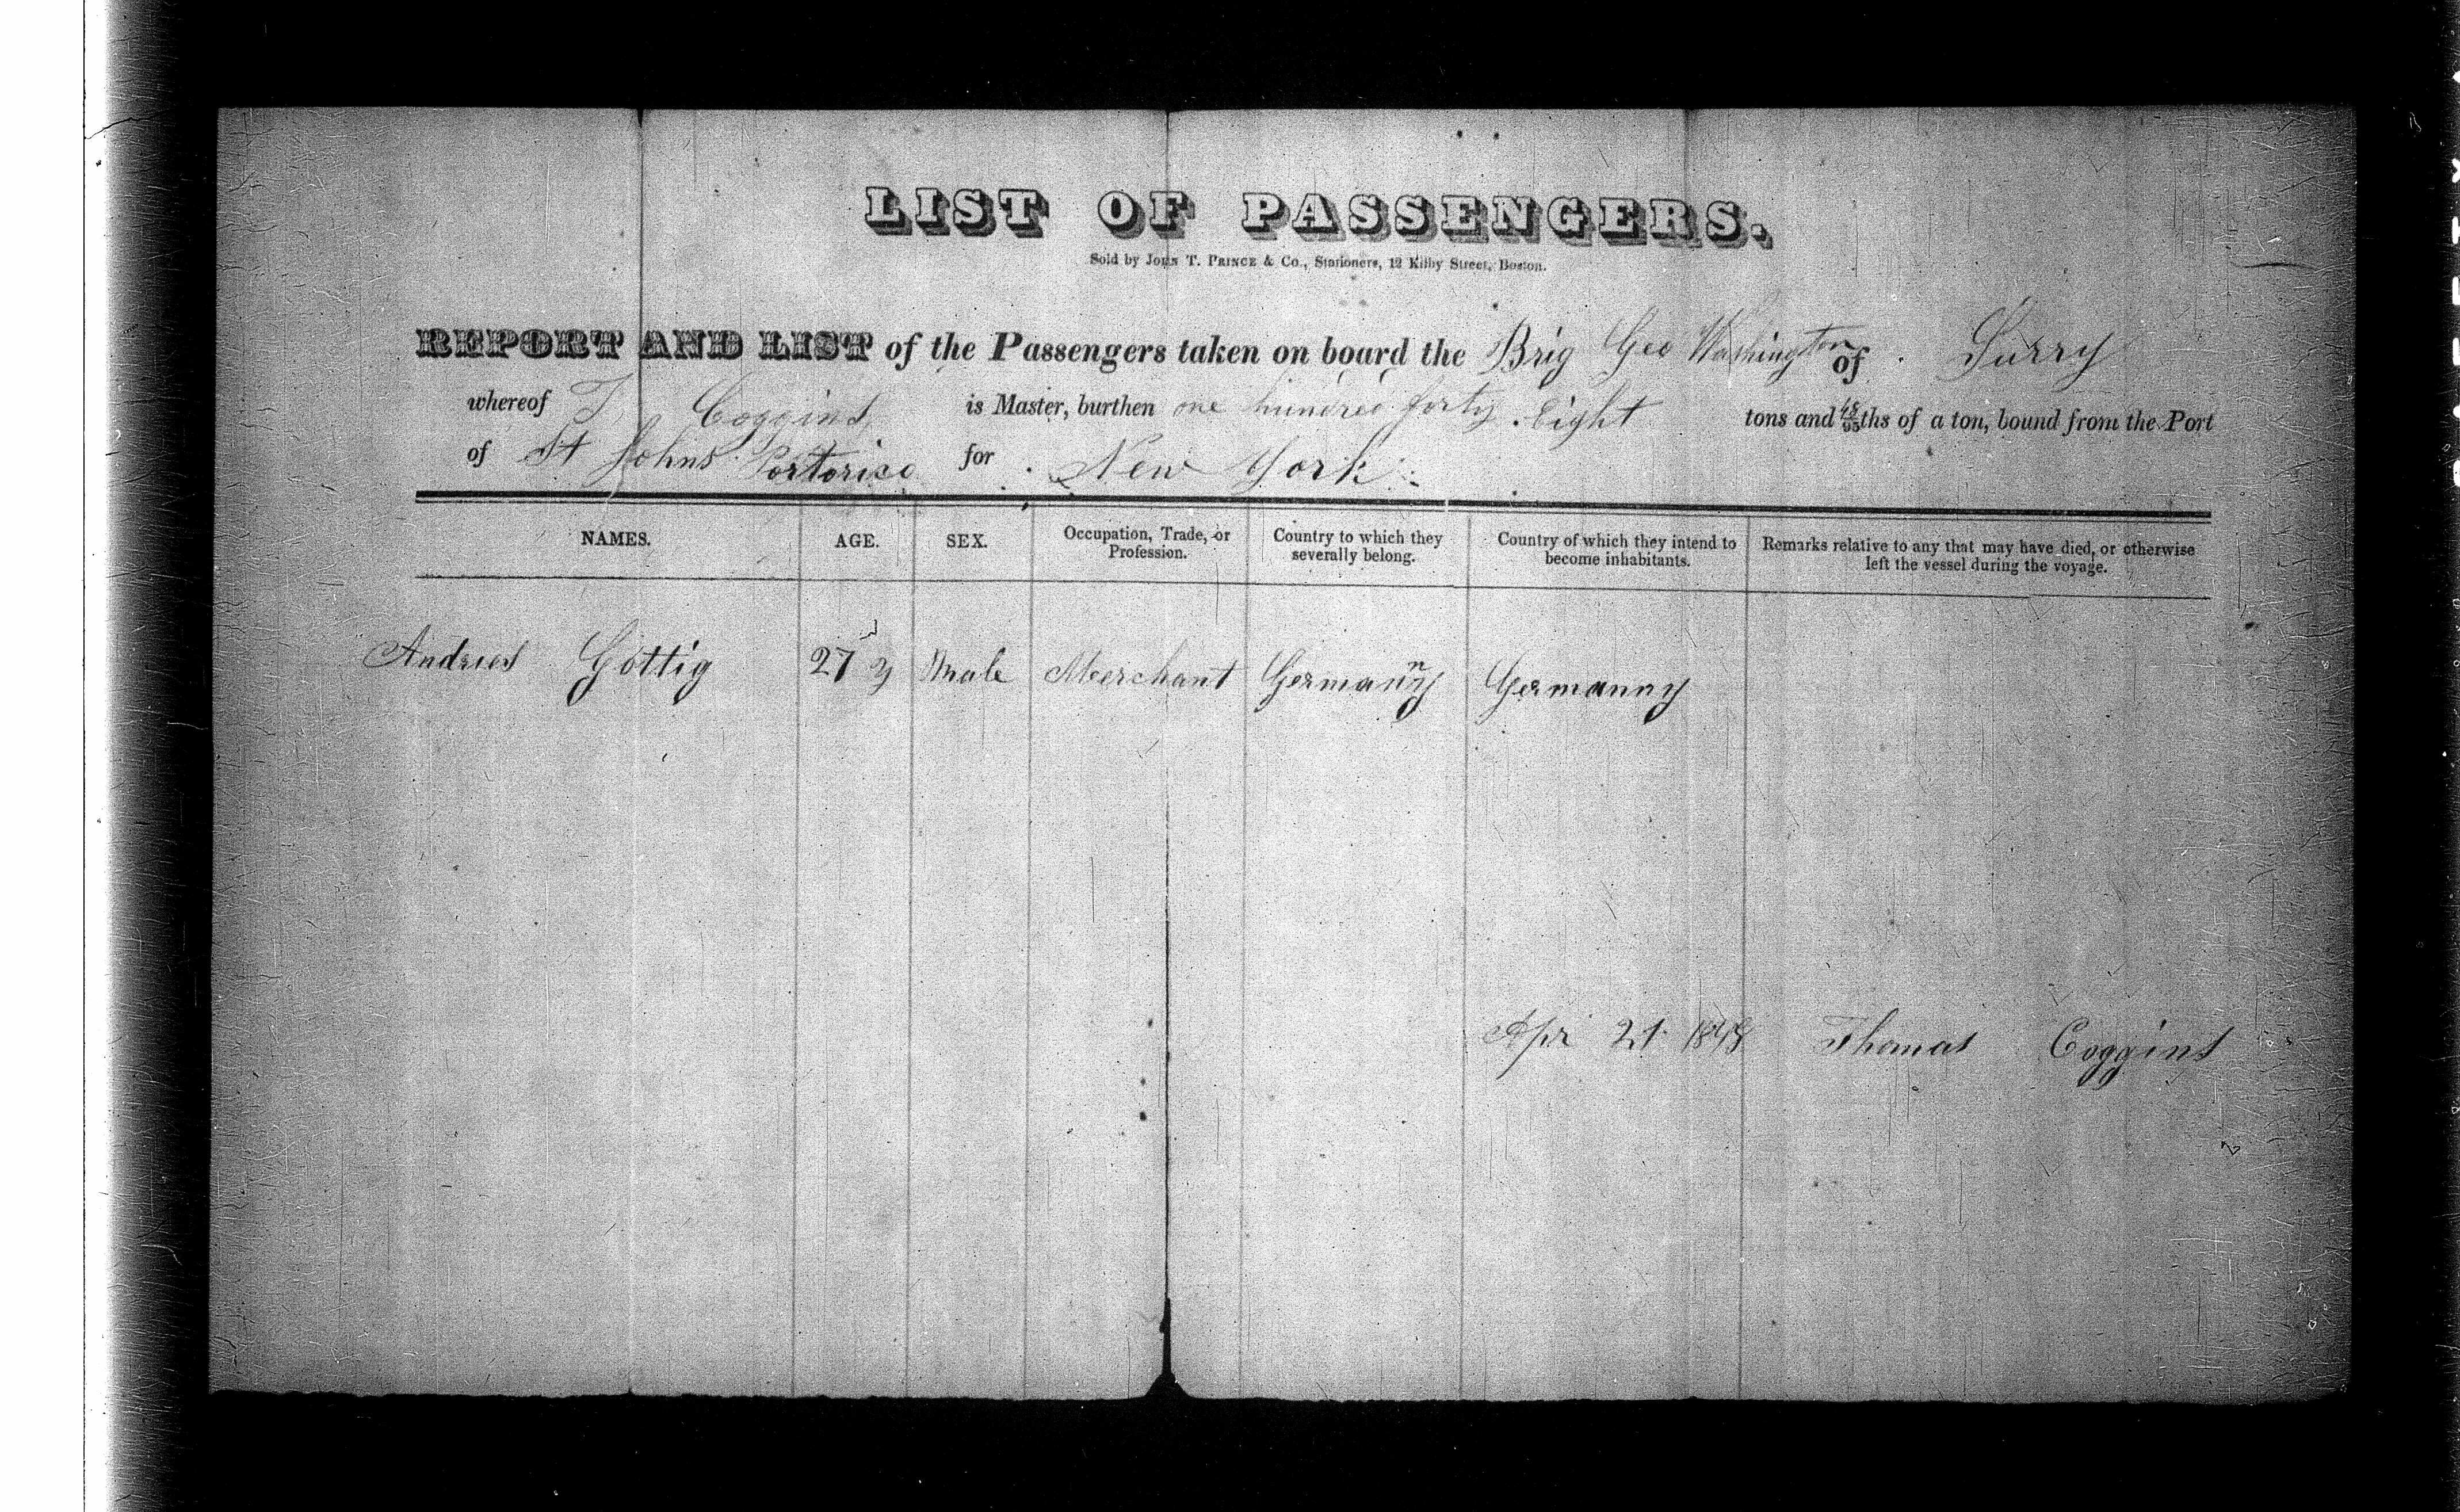 LIST OF PASSENGERS.
Sold by JOHN T. PRINCE & Co., Stationers, 12 Kilby Street, Boston.
REPORT AND LIST of the Passengers taken on board the Brig Geo Washington of Surry
whereof T Coggins is Master, burthen one hundred forty Eight tons and 48/95ths of a ton, bound from the Port
of St Johns Portorico for New York
NAMES. AGE. SEX. Occupation, Trade, or Profession. Country to which they severally belong. Country of which they intend to become inhabitants. Remarks relative to any that may have died, or otherwise left the vessel during the voyage.
Andreas Göttig 27 y Male Meerchant Germanny Germanny
Apr 21 1848 Thomas Coggins